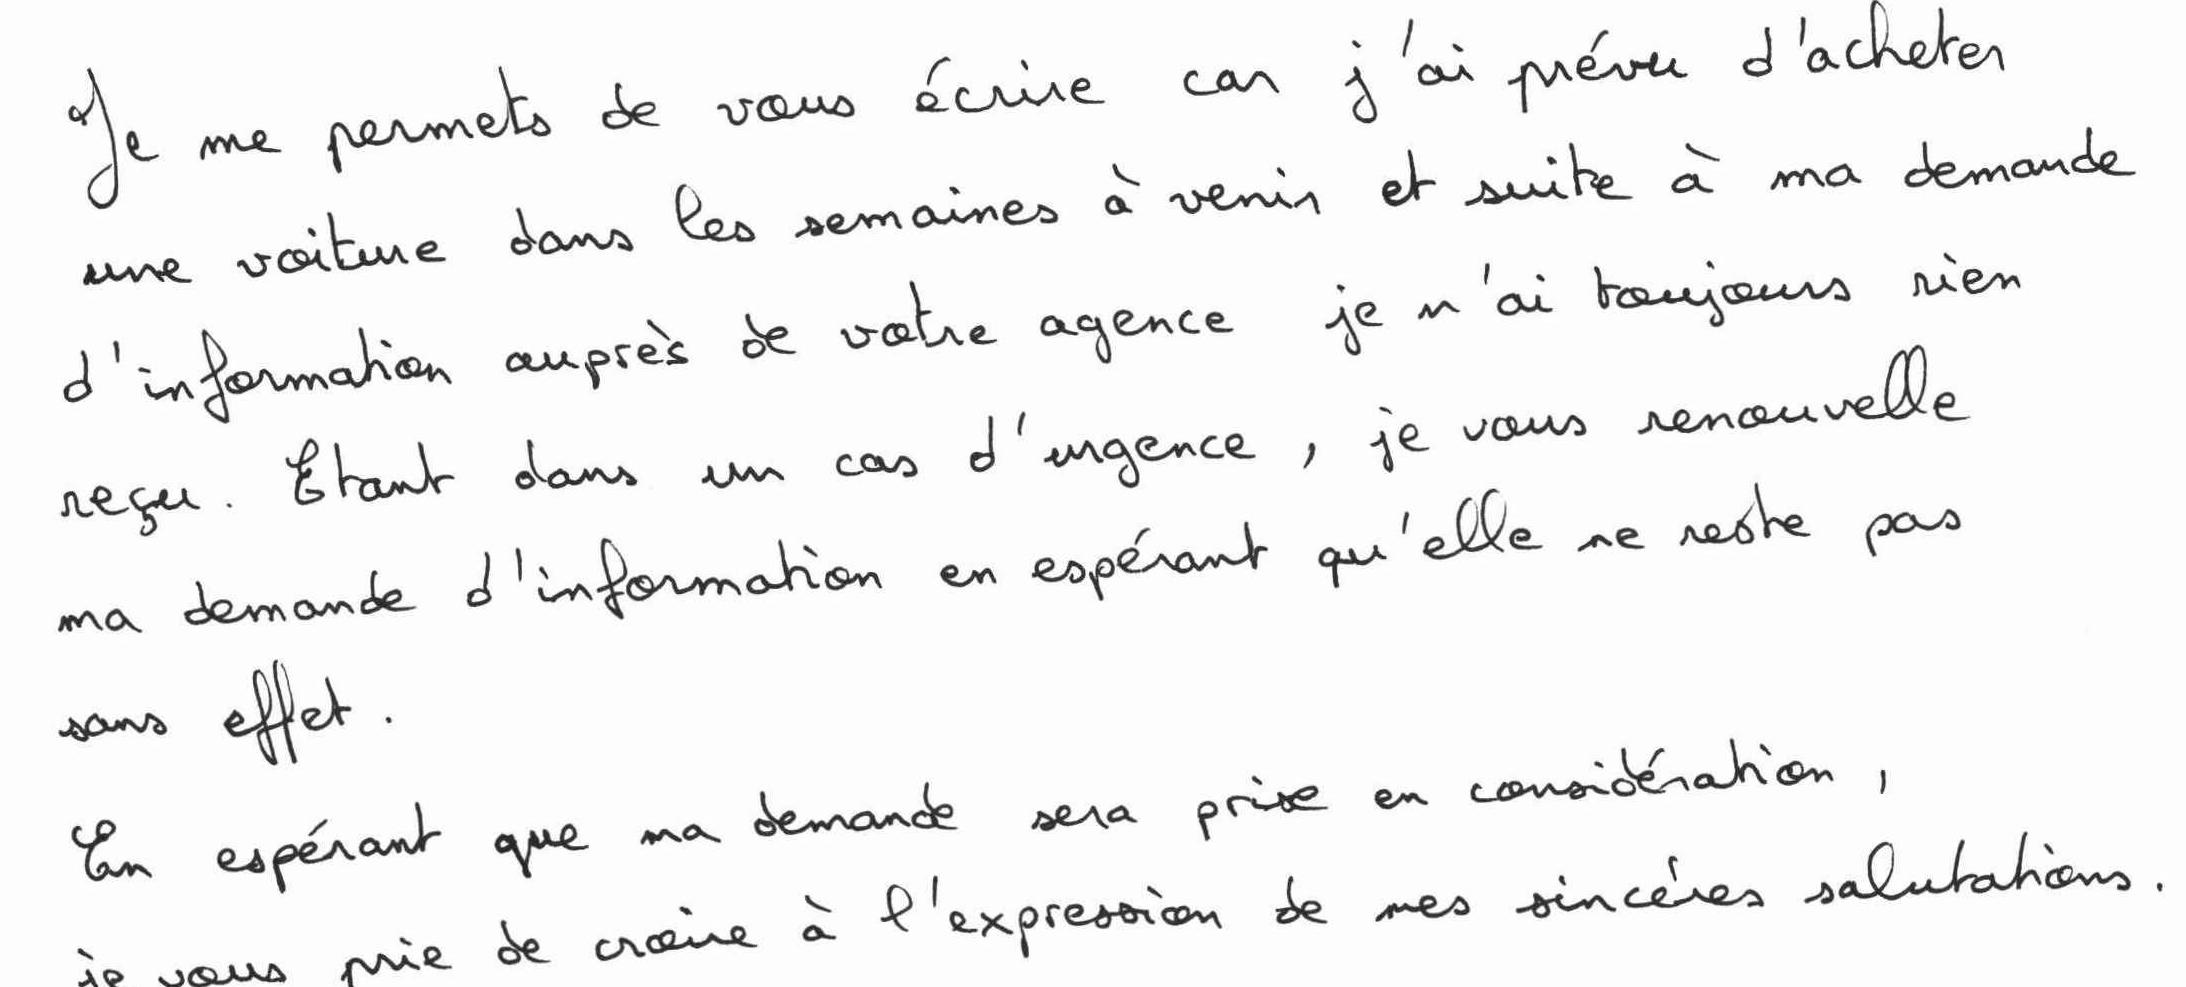 Je me permets de vous écrire car j'ai prévu d'acheter
une voiture dans les semaines à venir et suite à ma demande
d'information auprès de votre agence je n'ai toujours rien
reçu. Etant dans un cas d'urgence, je vous renouvelle
ma demande d'information en espérant qu'elle ne reste pas
sans effet.
En espérant que ma demande sera prise en considération,
je vous prie de croire à l'expression de mes sincéres salutations.